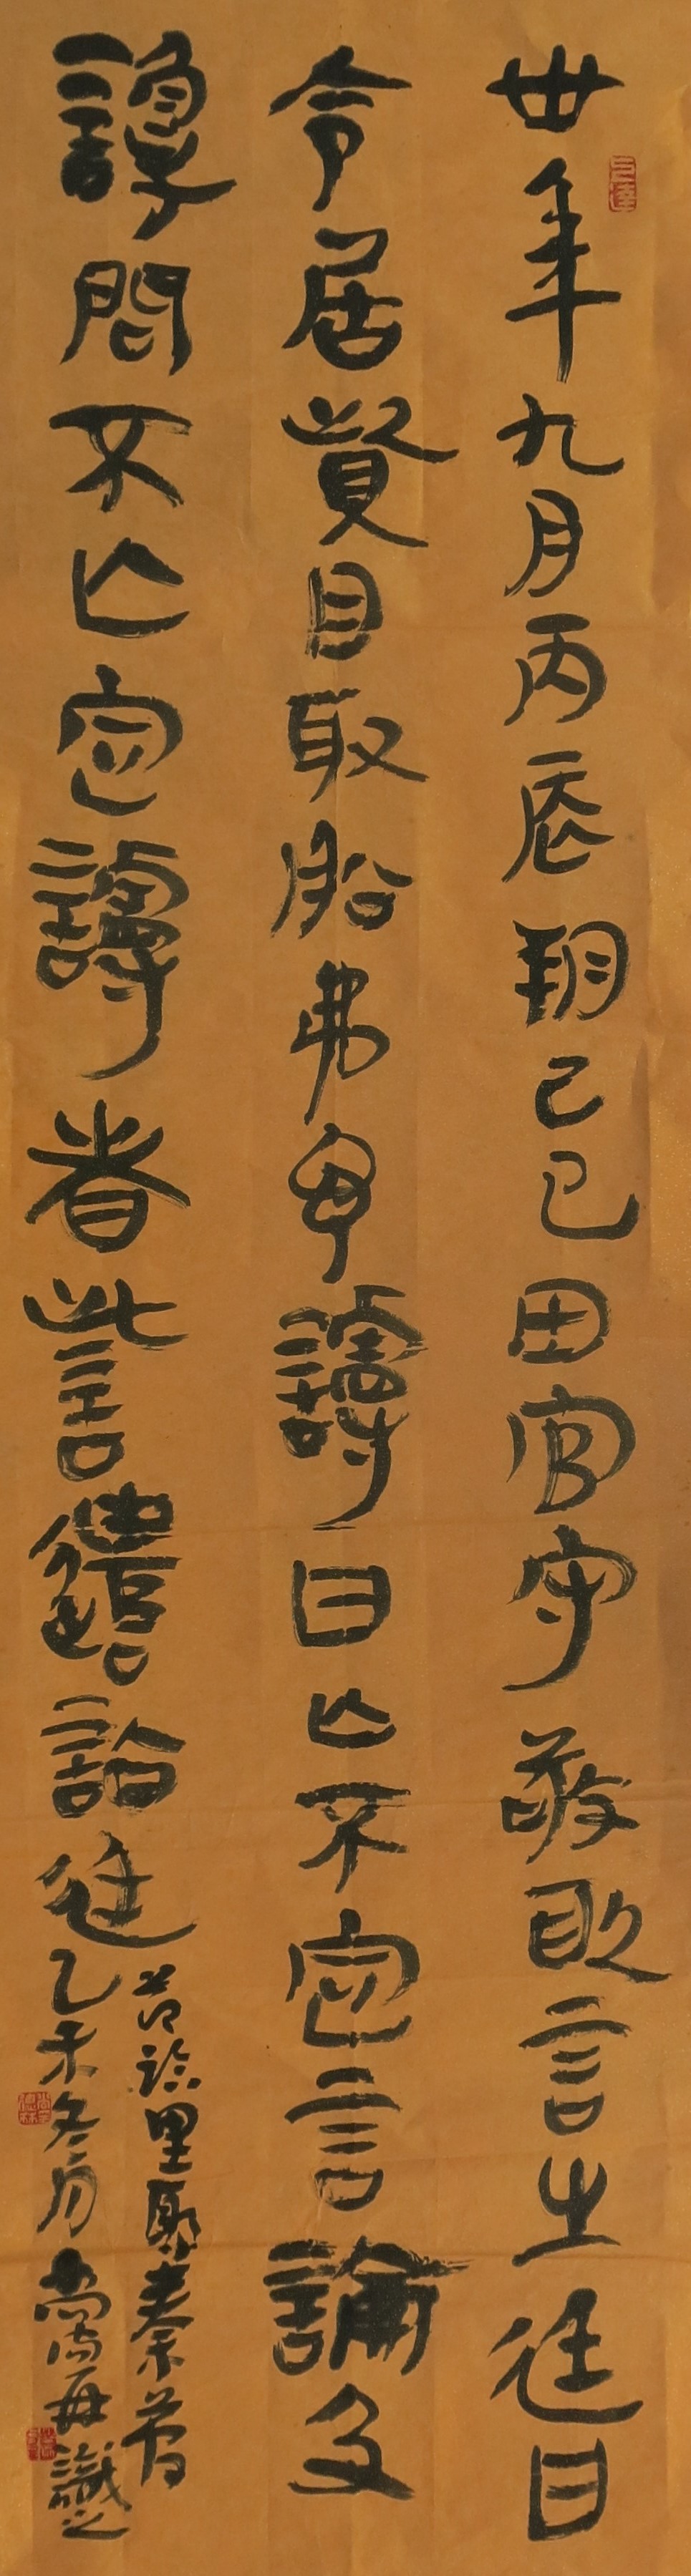 卅年九月丙辰朔己巳田官守敬敢言之廷曰
令居貲目取船弗予謾曰亡不定言論及
諄問不亡定謾者訾遣詣廷
节臨里耶秦簡
乙未冬月尚再識之